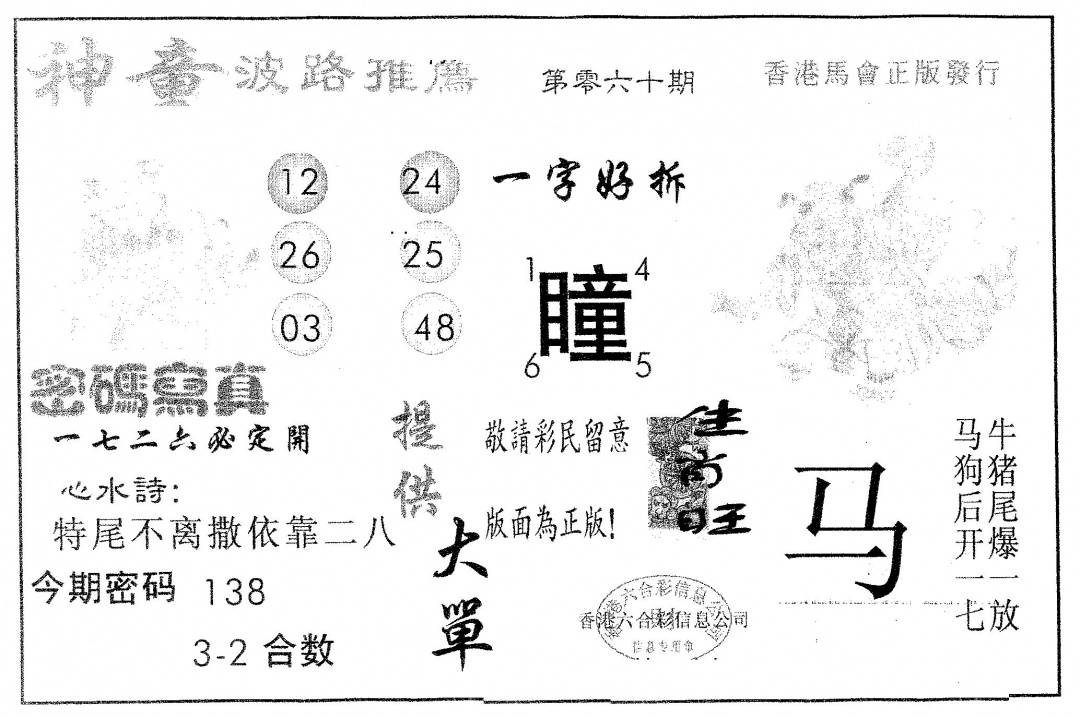 神童波路推薦
第零六十期
香港馬會正版發行
12 24
26 25
03 48
一字好拆
1 4
瞳
6 5
密碼寫真
一七二六必定開
心水詩:
特尾不离撒依靠二八
今期密码 138
3-2 合数
提供
大單
敬請彩民留意
版面為正版!
马
牛猪尾爆一放
马狗后开一七
香港六合彩信息公司
香港六合彩信息公司
信息专用章